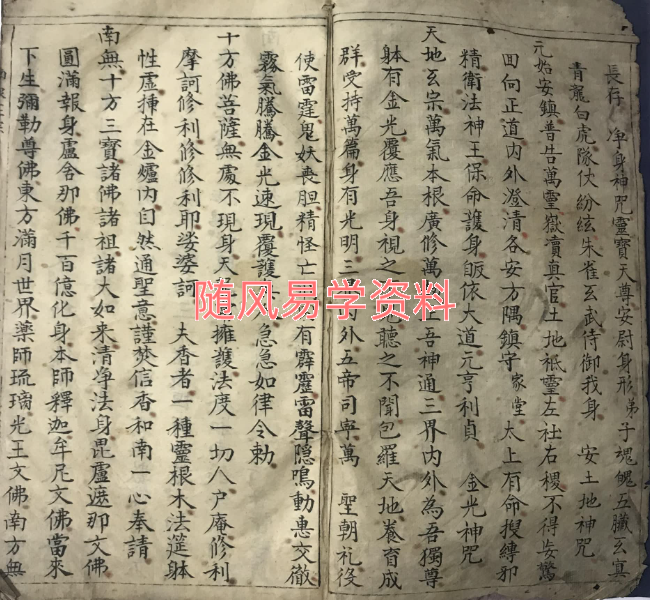 長存　净身神咒靈寶天尊安尉身形弟子魂魄五臟玄冥
青龍白虎隊仗紛紜朱雀玄武侍御我身　安土地神咒
元始安鎮普告萬靈嶽瀆真官土地祗靈左社右稷不得妄驚
回向正道内外澄清各安方隅鎮守家堂　太上有命搜縛邪
精衛法神王保命護身皈依大道元亨利貞　金光神咒
天地玄宗萬氣本根廣修萬吾神通三界内外為吾獨尊
躰有金光覆應吾身視之聽之不聞包羅天地養育成
群受持萬篇身有光明三内外五帝司寧萬　聖朝礼役
使雷霆鬼妖喪胆精怪亡有霹靂雷聲隠鳴動惠交徹
霧氣騰騰金光速現覆護急急如律令勅
十方佛菩薩無處不現身天擁護法度一切八戸庵修利
摩訶修利修修利耶娑婆訶　夫香者一種靈根木法莚躰
性虛挿在金爐内自然通聖意謹焚信香和南一心奉請
南無十方三寶諸佛諸祖諸大如来清净法身毘盧遮那文佛
圓滿報身盧舍那佛千百億化身本師釋迦牟尼文佛當來
下生彌勒尊佛東方滿月世界藥師琉璃光王文佛南方無
随风易学资料